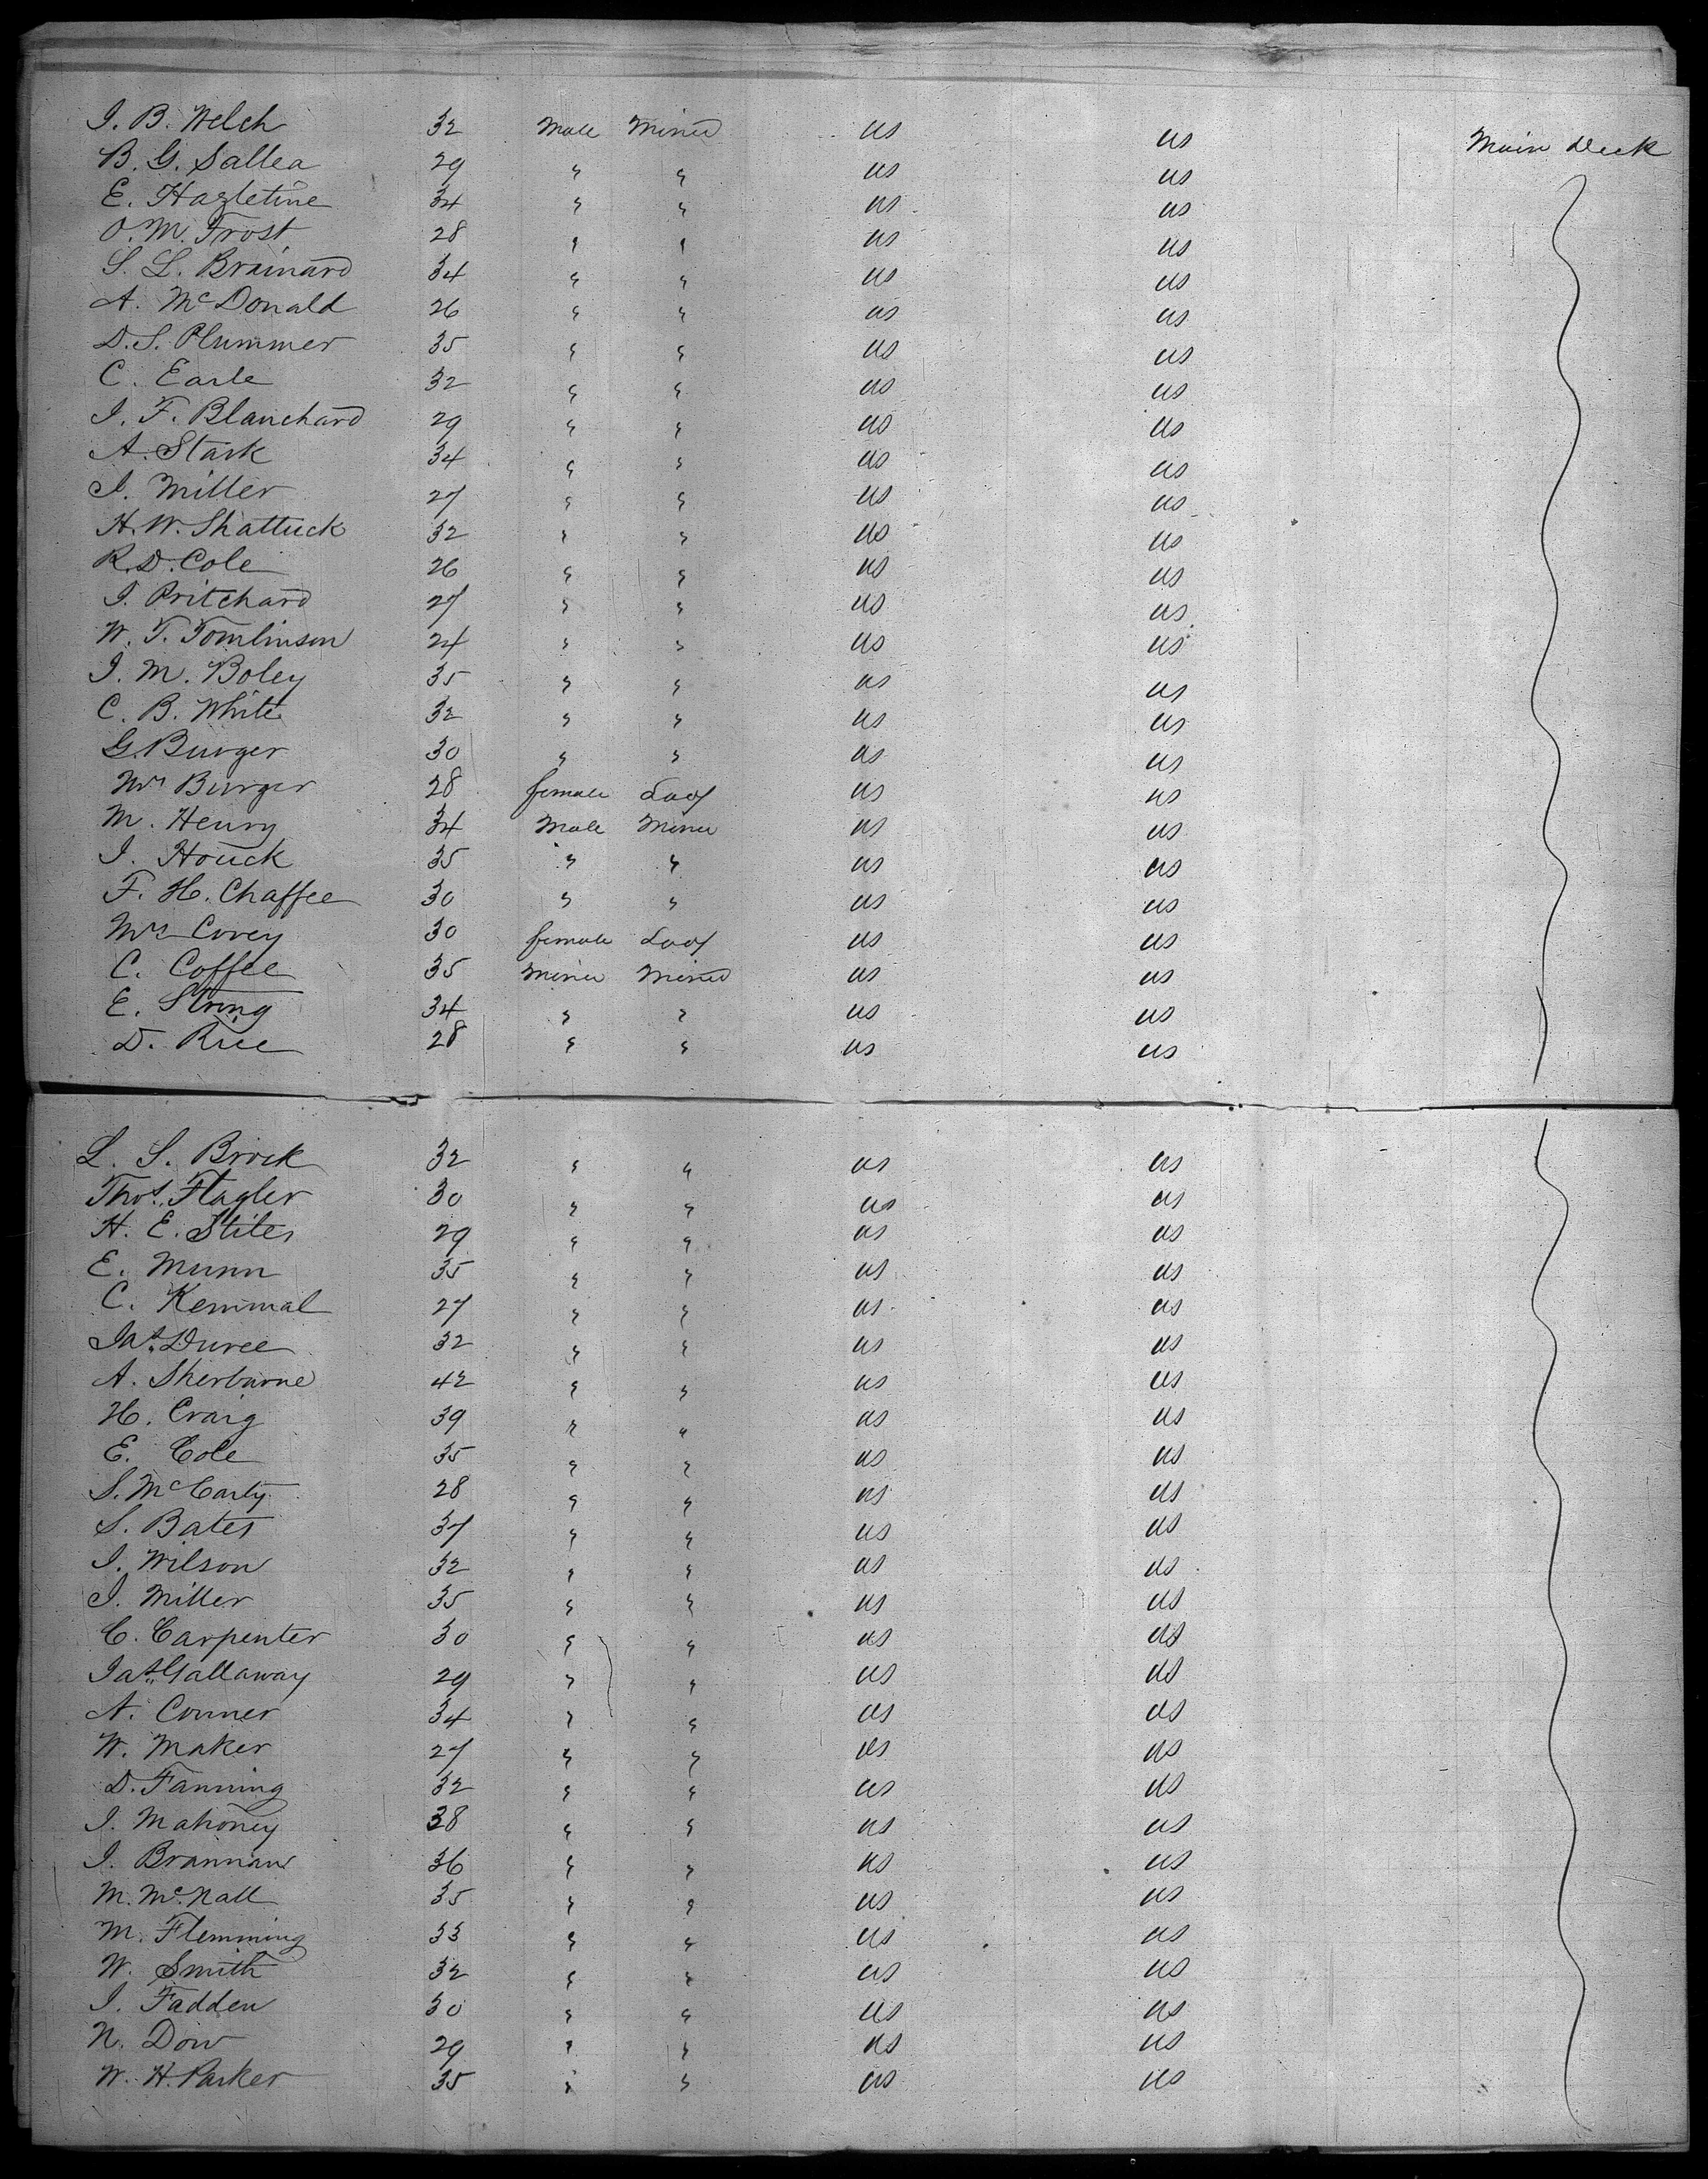 I. B. Welch 32 Male Miner US US Main Deck
B. G. Sallea 29 " " US US
E. Hazletine 34 " " US US
O. M. Frost 28 " " US US
S. L. Brainard 34 " " US US
A. McDonald 26 " " US US
D. S. Plummer 35 " " US US
C. Earle 32 " " US US
I. F. Blanchard 29 " " US US
A. Stark 34 " " US US
I. Miller 27 " " US US
H. W. Shattuck 32 " " US US
R. D. Cole 26 " " US US
I. Pritchard 27 " " US US
W. T. Tomlinson 24 " " US US
I. M. Boley 35 " " US US
C. B. White 32 " " US US
G. Burger 30 " " US US
Mrs Burger 28 female Lady US US
M. Henry 34 Male Miner US US
I. Houck 35 " " US US
F. H. Chaffee 30 " " US US
Mrs Covey 30 female Lady US US
C. Coffee 35 Miner Miner US US
E. Strong 34 " " US US
D. Rice 28 " " US US
L. S. Brock 32 " " US US
Thos. Flagler 30 " " US US
H. E. Stiles 29 " " US US
E. Munn 35 " " US US
C. Kemmal 27 " " US US
Jas. Duree 32 " " US US
A. Sherburne 42 " " US US
H. Craig 39 " " US US
E. Cole 35 " " US US
S. McCarty 28 " " US US
S. Bates 37 " " US US
I. Wilson 32 " " US US
I. Miller 35 " " US US
C. Carpenter 30 " " US US
Jas. Gallaway 29 " " US US
N. Conner 34 " " US US
W. Maker 27 " " US US
D. Fanning 32 " " US US
I. Mahoney 38 " " US US
I. Brannan 36 " " US US
M. McNall 35 " " US US
M. Flemming 33 " " US US
W. Smith 32 " " US US
I. Fadden 30 " " US US
N. Dow 29 " " US US
W. H. Parker 35 " " US US